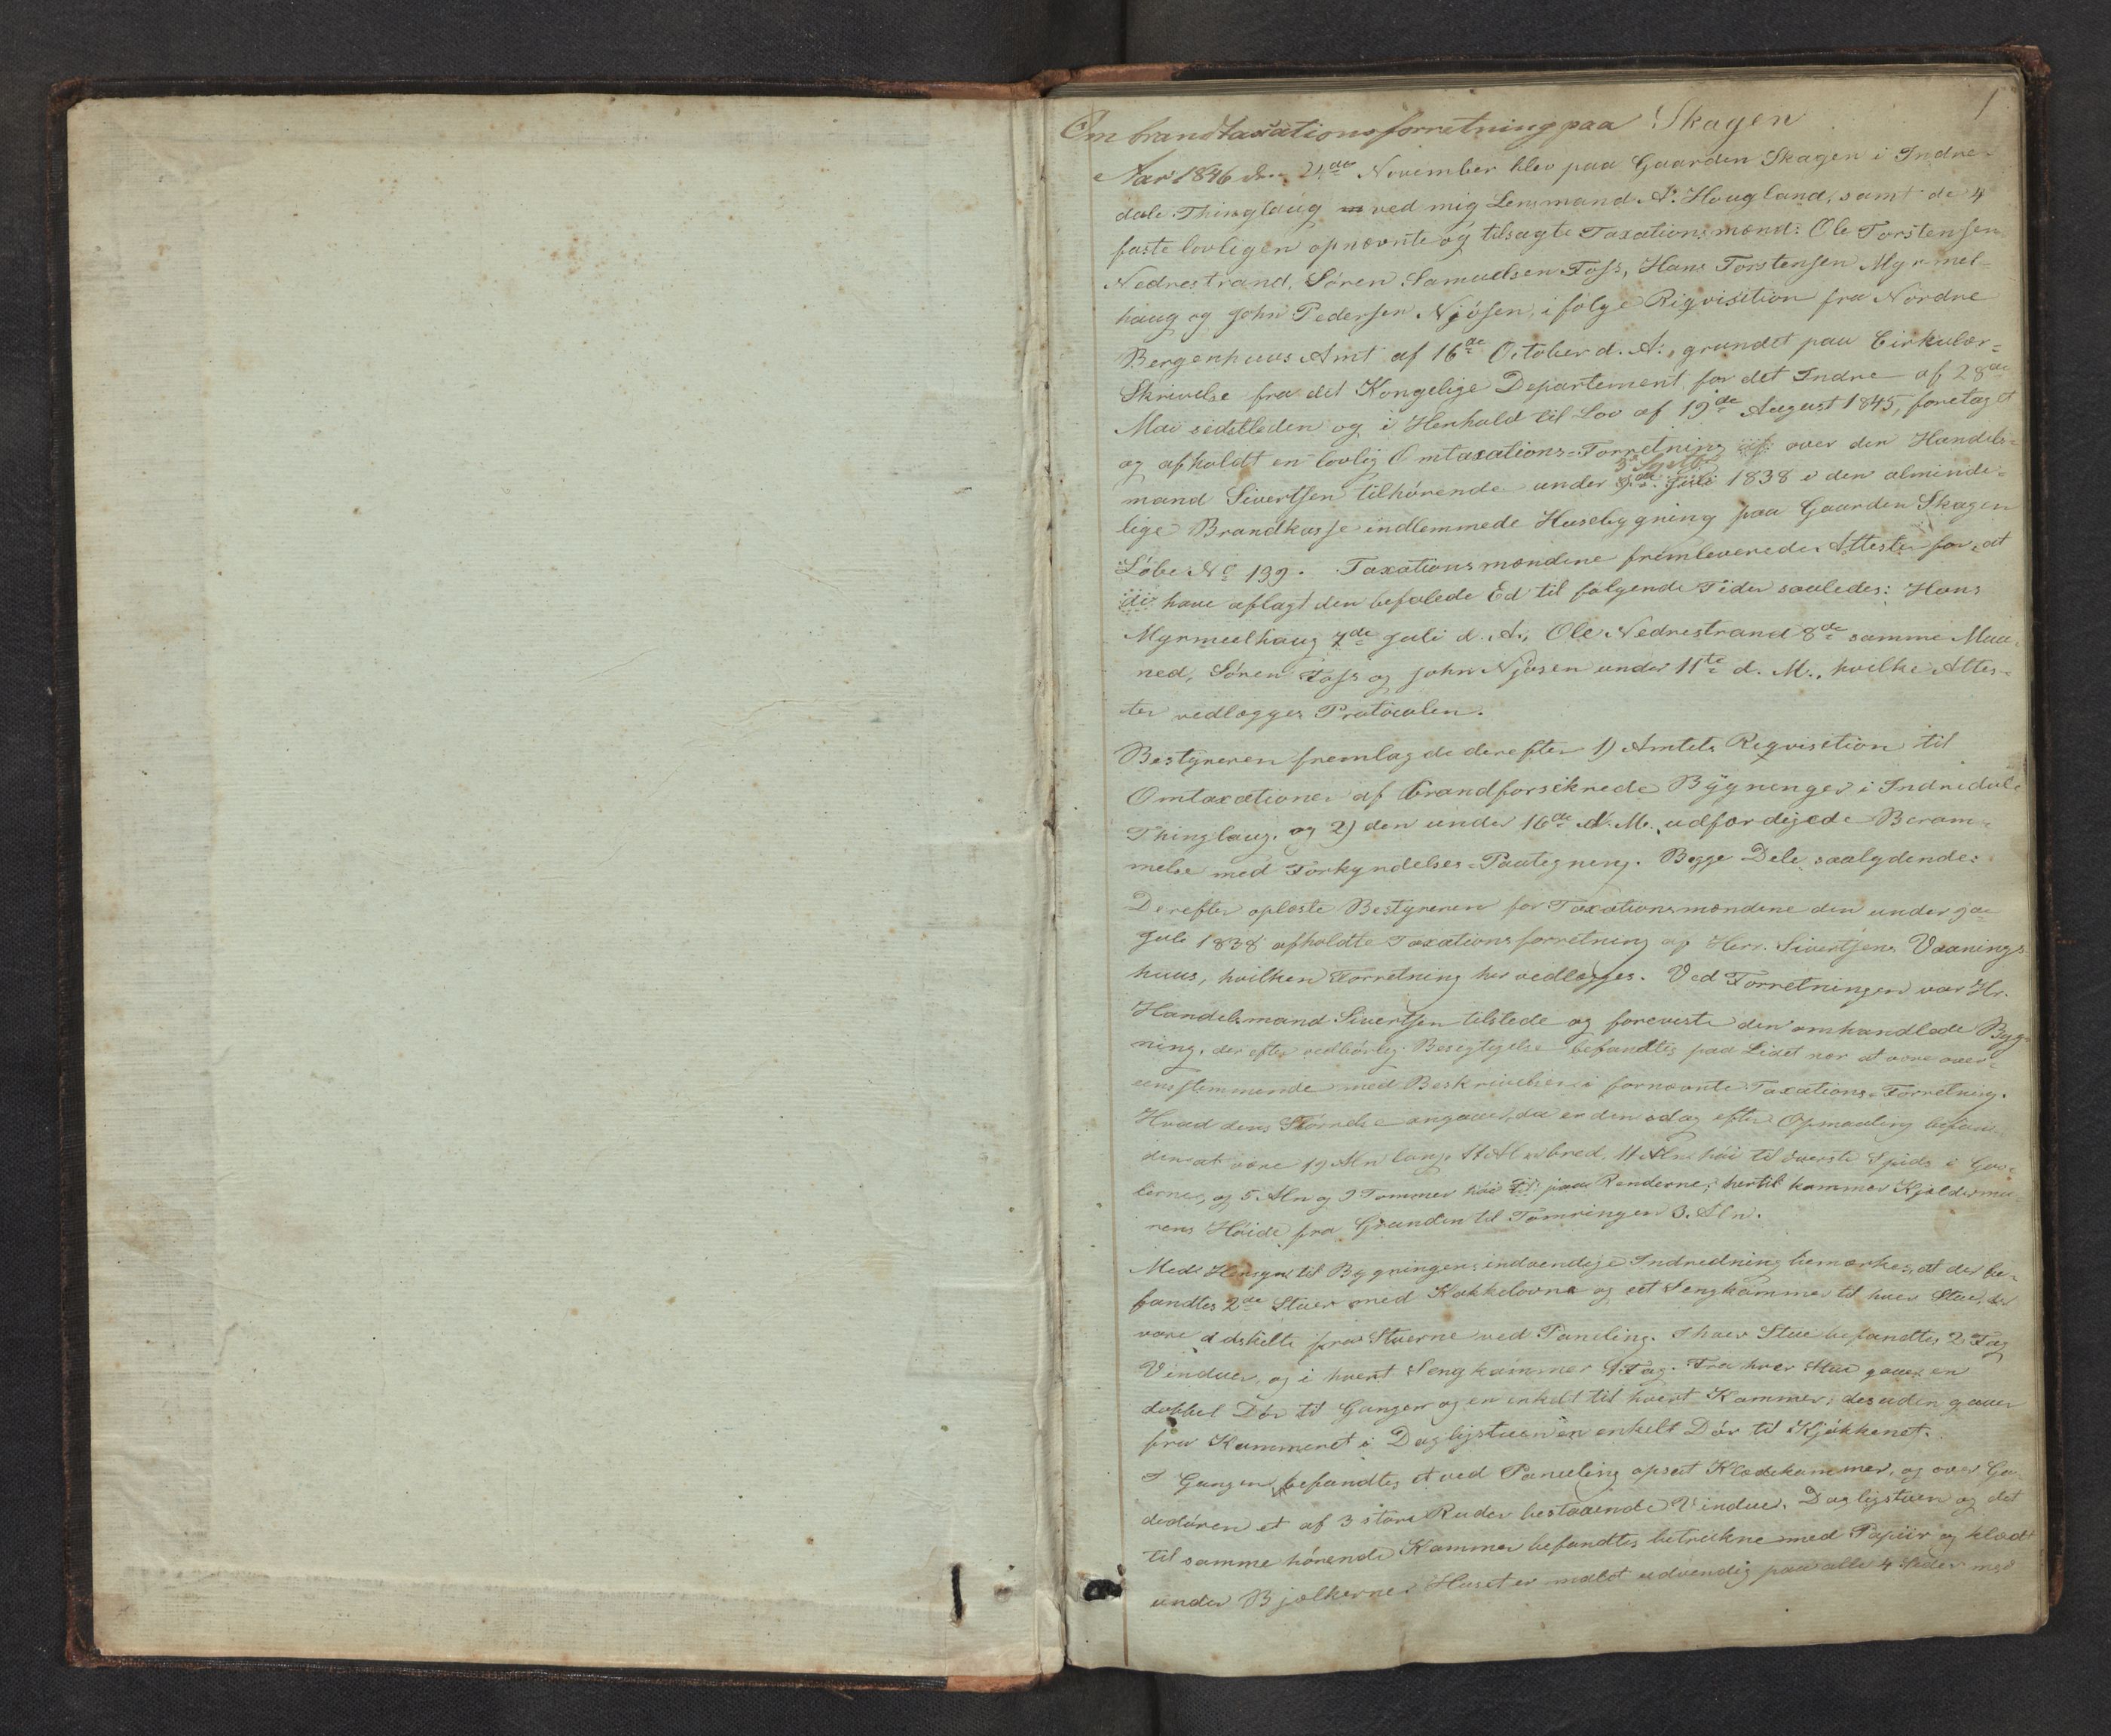 1
Om brandtaxationsforretning paa Skagen
Aar 1846 den 21de November blev paa Gaarden Skagen i Indre-
dale Thinglaug ved mig Lensmand A. Hougland, samt de 4
faste lovligen opnævnte og tilsagte Taxationsmænd: Ole Torstensen
Nedrestrand, Sören Samuelsen Foss, Hans Torstensen Myrmel-
haug og John Pedersen Njösen, i fölge Riqvisition fra Nordre
Bergenhuus Amt af 16de October d. A., grundet paa Cirkulær-
Skrivelse fra det Kongelige Departement for det Indre af 28de
Mai sidstleden og i Henhold til Lov af 19de August 1845, foretaget
og afholdt en lovlig Omtaxations-Forretning over den Handels-
mand Sivertsen tilhörende under 3 Septbr 1838 i den alminde-
lige Brandkasse indlemmede Huusbygning paa Gaarden Skagen
Löbe No 139. Taxationsmændene fremleverede Attester for, at
de have aflagt den befalede Ed til fölgende Tider saaledes: Hans
Myrmeelhaug 7de Juli d. A., Ole Nedrestrand 8de samme Maa-
ned, Sören Foss og John Njösen under 11te d. M., hvilke Attes-
ter vedlægges Protocolen.
Bestyreren fremlagde derefter 1) Amtets Reqvisition til
Omtaxationer af brandforsikrede Bygninger i Indredale
Thinglaug, og 2) den under 16de d. M. udfærdigede Beram-
melse med Forkyndelses-Paategning. Begge Dele saalydende:
Derefter oplæste Bestyreren for Taxationsmændene den under 9de
Juli 1838 afholdte Taxationsforretning af Herr. Sivertsens Vaanings-
huus, hvilken Forretning her vedlægges. Ved Forretningen var Hr.
Handelsmand Sivertsen tilstede og foreviste den omhandlede Byg-
ning, der efter vedbörlig Besigtigelse befandtes paa Lidet nær at være over-
eensstemmende med Beskrivelsen i fornævnte Taxations-Forretning.
Hvad dens Störrelse angaaer, da er den idag efter Opmaaling befun-
den at være 19 Aln lang, 11 Aln bred, 11 Aln höi til överste Spids i Gav-
lerne, og 5 Aln og 9 Tommer höi til paa Randerne; hertil kommer Kjeldermu-
rens Höide fra Grunden til Tömringen 3 Aln.
Med Hensyn til Bygningens indvendige Indredning bemærkes, at der be-
fandtes 2de Stuer med Kakkelovne og eet Sengkammer til hver Stue, der
vare adskilte fra Stuerne ved Paneling. I hver Stue befandtes 2 Fag
Vinduer, og i hvert Sengkammer 1 Fag. Fra hver Stue gaaer en
dobbel Dör til Gangen og en enkelt til hvert Kammer; desuden gaaer
fra Kammeret i Dagligstuen en enkelt Dör til Kjökkenet.
I Gangen befandtes et ved Paneeling opsat Klædekammer, og over Ga-
dedören et af 3 store Ruder bestaaende Vindue. Dagligstuen og det
til samme hörende Kammer befandtes betrukne med Papiir og klædt
under Bjelkerne. Huset er malet udvendig paa alle 4 Sider med